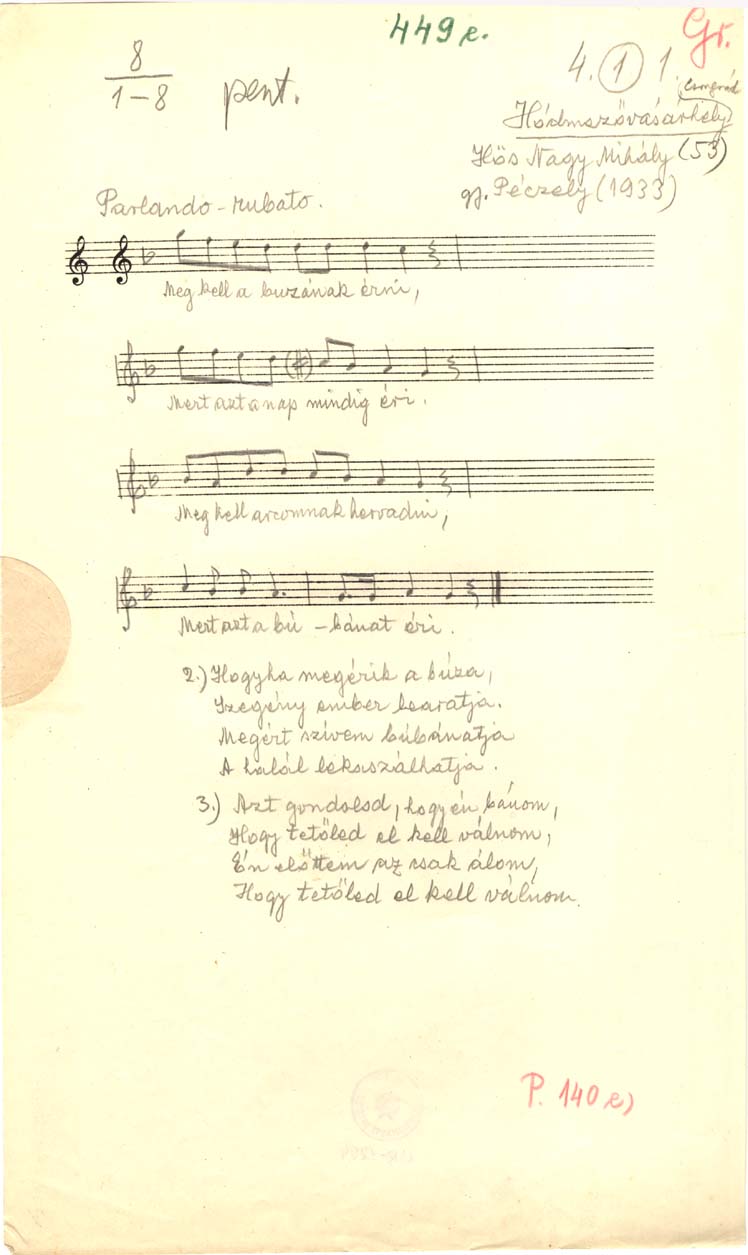 449e.
Gr.
8
1-8
pent.
4. 1 1.
Csongrád
Hódmezővásárhely
Hős Nagy Mihály (53)
gy. Péczely (1933)
Parlando-rubato.
Meg kell a buzának érni,
Mert azt a nap mindig éri.
Meg kell arcomnak hervadni,
Mert azt a bú - bánat éri.
2.) Hogyha megérik a búza,
Szegény ember learatja.
Megért szívem búbánatja
A halál lekaszálhatja.
3.) Azt gondolod, hogy én bánom,
Hogy tetőled el kell válnom,
Én előttem az csak álom,
Hogy tetőled el kell válnom.
P. 140 e)